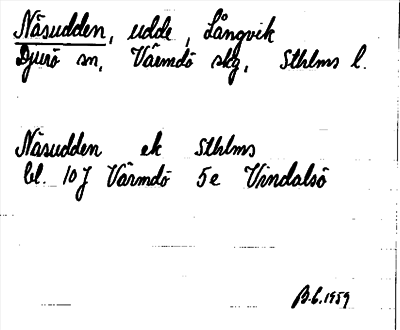 Näsudden, udde, Långvik
Djurö sn, Värmdö skg, Sthlms l.
Näsudden ek Sthlms
bl. 10J Värmdö 5e Vindalsö
B.G.1959